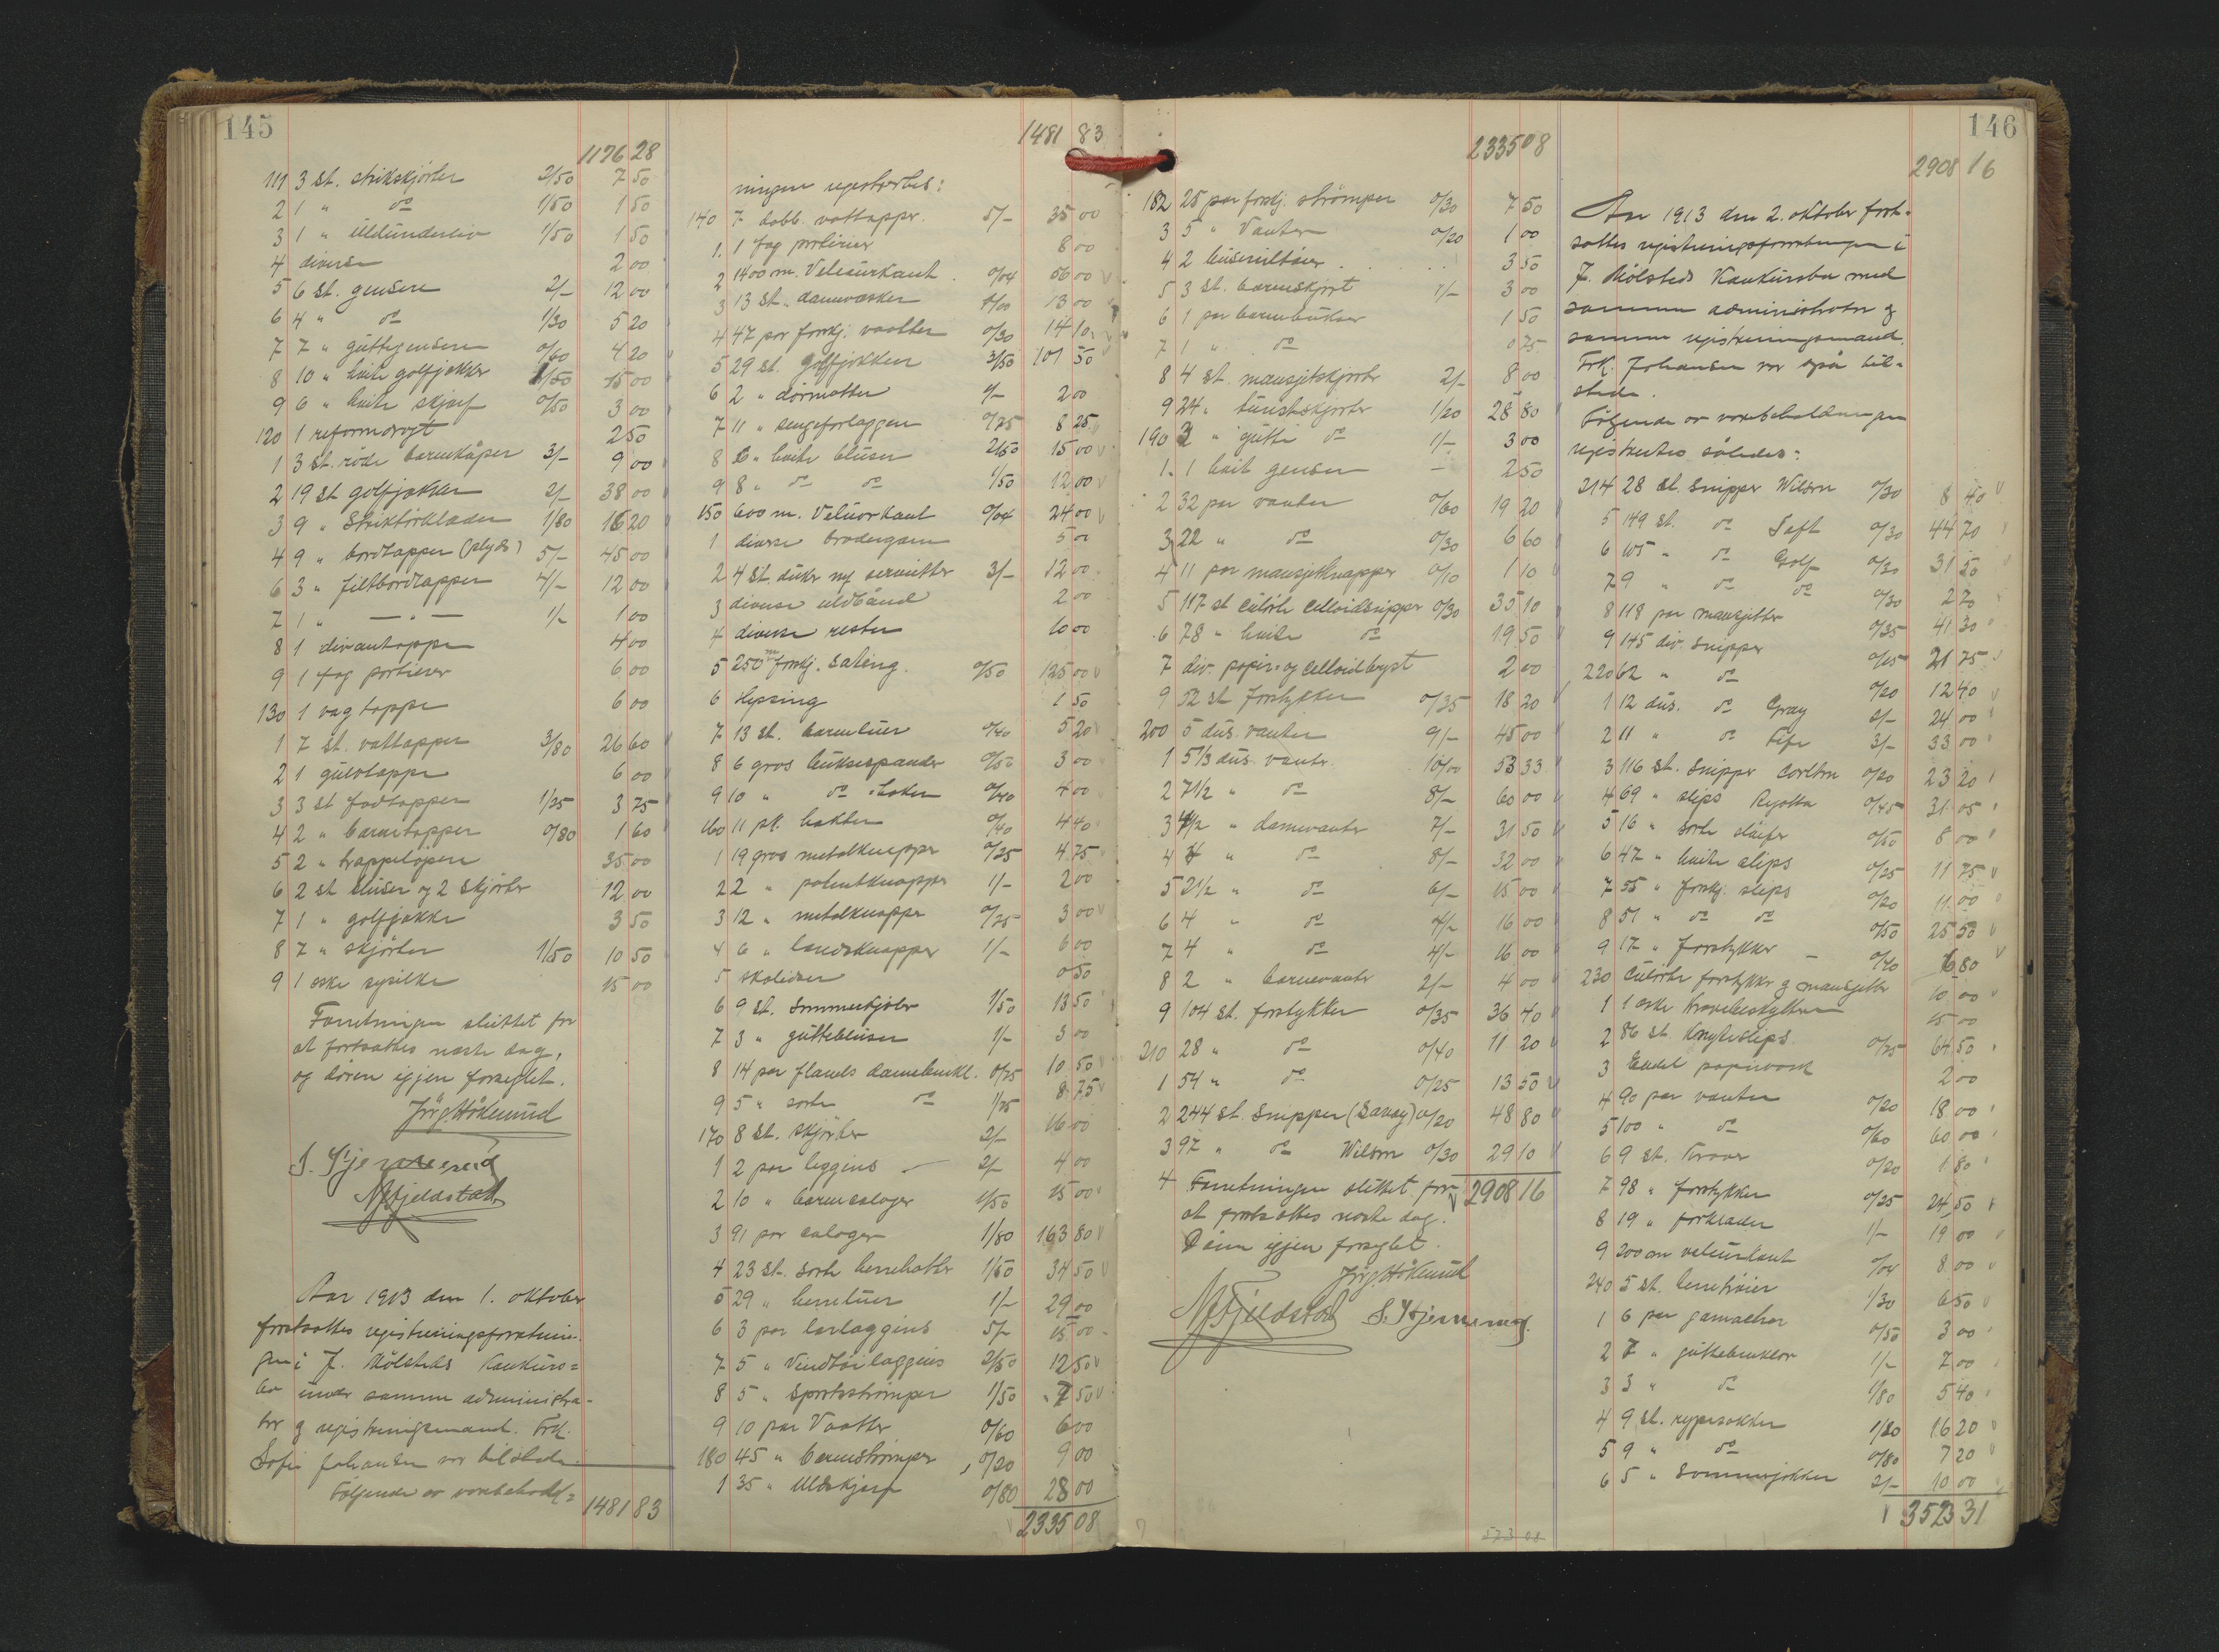 145
1176 28
111 3 st. strikskjörter 2/50 7 50
2 1 " do 1/50 1 50
3 1 " ulldunderliv 1/50 1 50
4 diverse 2 00
5 6 st. gensere 2/- 12 00
6 4 " do 1/30 5 20
7 7 " guttegensere 0/60 4 20
8 10 " hvite golfjakker 1/50 15 00
9 6 " hvite skjerf 0/50 3 00
120 1 reformdragt 2 50
1 3 st. röde barnekåper 3/- 9 00
2 19 st golfjakker 2/- 38 00
3 9 " Strikforklæder 1/80 16 20
4 9 " bordtepper (plyds) 5/- 45 00
6 3 " filtbordtepper 4/- 12 00
7 1 " — " — 1/- 1 00
8 1 divanteppe 4 00
9 1 fag portierer 6 00
130 1 vægteppe 6 00
1 7 st. vattepper 3/80 26 60
2 1 gulvteppe 6 00
3 3 st fodtepper 1/25 3 75
4 2 " barnetepper 0/80 1 60
5 2 " trappelöpere 35 00
6 2 st bluser og 2 skjörter 12 00
7 1 " golfjakke 3 50
8 7 " skjörter 1/50 10 50
9 1 eske sysilke 15 00
Forretningen sluttet for
at fortsættes neste dag,
og dören igjen forseglet.
Jörg. Höklund
S. Stjernerud
N. Fjeldstad
Aar 1913 den 1. oktober
fortsattes registreringsforretnin-
gen i J. Mölsteds konkurs=
bo under samme administra-
tor og registreringsmand. Frk.
Sofie Johansen var tilstede.
Fölgende av varebehold= 1481 83
1481 83
ningen registrertes:
140 7 dobb. vattepper. 5/- 35 00
1. 1 fag portierer 8 00
2 1400 m. Veleurkant 0/04 56 00
3 13 st. damevesker 1/00 13 00
4 47 par forskj. vaatter 0/30 14 10
5 29 st. golfjakker 3/50 101 50
6 2 " dörmatter 1/- 2 00
7 11 " sengeforlæggere 0/75 8 25
8 6 " hvite bluser 2/50 15 00
9 8 " do do 1/50 12 00
150 600 m. Velurkant 0/04 24 00
1 diverse brodergarn 5 00
2 4 st. duker m/ servietter 3/- 12 00
3 diverse uldbånd 2 00
4 diverse rester 10 00
5 250 m forskj. sateng. 0/50 125 00
6 Hyssing 1 50
7 13 st. barneluer 0/40 5 20
8 6 gros buksespænder 0/50 3 00
9 10 " do haker 0/40 4 00
160 11 pk. hekter 0/40 4 40
1 19 gros metalknapper 0/25 4 75
2 2 " patentknapper 1/- 2 00
3 12 " metalknapper 0/25 3 00
4 6 " landsknapper 1/- 6 00
5 skolisser 0 50
6 9 st. Sommerkjoler 1/50 13 50
7 3 " guttebluser 1/- 3 00
8 14 par flanels damebenkl. 0/75 10 50
9 5 " sorte do 1/75 8 75
170 8 st. skjörter 2/- 16 00
1 2 par leggins 2/- 4 00
2 10 " barnekaloger 1/50 15 00
3 91 par kaloger 1/80 163 80
4 23 st. sorte herrehatter 1/50 34 50
5 29 " herreluer 1/- 29 00
6 3 par lærleggins 5/- 15 00
7 5 " Vindtöileggins 2/50 12 50
8 5 " Sportsströmper 1/50 7 50
9 10 par Vaatter 0/60 6 00
180 45 " barneströmper 0/20 9 00
1 35 " Uldskjerf 0/80 28 00
2335 08
146
2335 08
182 25 par forskj. strömper 0/30 7 50
3 5 " Vanter 0/20 1 00
4 2 3 50
5 3 st. barneskjört 1/- 3 00
6 1 par barnebukser 1 50
7 1 " do 0 75
8 4 st. mansjetskjorter 2/- 8 00
9 24 " turistskjorter 1/20 28 80
190 3 " gutte do 1/- 3 00
1. 1 hvit genser - 2 50
2 32 par vanter 0/60 19 20
3 22 " do 0/30 6 60
4 11 par mansjetknapper 0/10 1 10
5 117 st culörte celloidsnipper 0/30 35 10
6 78 " hvite do 19 50
7 div. papir= og celloidbryst 2 00
9 52 st forstykker 0/35 18 20
200 5 dus. vanter 9/- 45 00
1 5 1/3 dus. vanter 10/00 53 33
2 7 1/2 " do 8/- 60 00
3 4 1/2 " damevanter 7/- 31 50
4 4 " do 8/- 32 00
5 2 1/2 " do 6/- 15 00
6 4 " do 4/- 16 00
7 4 " do 4/- 16 00
8 2 " barnevanter 2/- 4 00
9 104 st. forstykker 0/35 36 40
210 28 " do 0/40 11 20
1 54 " do 0/25 13 50
2 244 st Snipper (Savoy) 0/20 48 80
3 97 " do Wilson 0/30 29 10
4 Forretningen sluttet for 2908 16
at fortsættes neste dag.
Dören igjen forseglet.
Jörg. Höklund
N. Fjeldstad S. Stjernerud.
573 08
2908 16
Aar 1913 den 2. oktober fort-
sattes registreringsforretningen i
J. Mölsteds Konkursbo med
samme administrator og
samme registreringsmand.
Frk. Johansen var også til-
stede.
Fölgende av varebeholdningen
registrertes således:
214 28 st. Snipper Wilson 0/30 8 40
5 149 st. do Taft 0/30 44 70
6 105 " do Golf 0/30 31 50
7 9 " do do 0/30 2 70
8 118 par mansjetter 0/35 41 30
9 145 div. snipper 0/15 21 75
220 62 " do 0/20 12 40
1 12 dus. do Gray 2/- 24 00
2 11 " do Fife 3/- 33 00
3 116 st. Snipper Carlton 0/20 23 20
4 69 " slips Regatta 0/45 31 05
5 16 " sorte slöifer 0/50 8 00
6 47 " hvite slips 0/25 11 75
7 55 " forskj. slips 0/20 11 00
8 51 " do do 0/50 25 50
9 17 " forstykker 0/40 6 80
230 Culörte forstykker og mansjetter 10 00
1 1 eske kravebeskyttere 15 00
2 86 st. Knyteslips. 0/75 64 50
3 Endel papirvask 2 00
4 90 par vanter 0/20 18 00
5 100 " do 0/60 60 00
6 9 st. kraver 0/20 1 80
7 98 " forstykker 0/25 24 50
8 19 " forklæder 1/- 19 00
9 200 m velourkant 0/04 8 00
240 5 st. herretröier 1/30 6 50
1 6 par gamacher 0/50 3 00
2 7 " guttebenklær 1/- 7 00
3 3 " do 1/80 5 40
4 9 st. rypesækker 1/80 16 20
5 9 " do 0/80 7 20
6 5 " Sommerjakker 2/- 10 00
3523 31